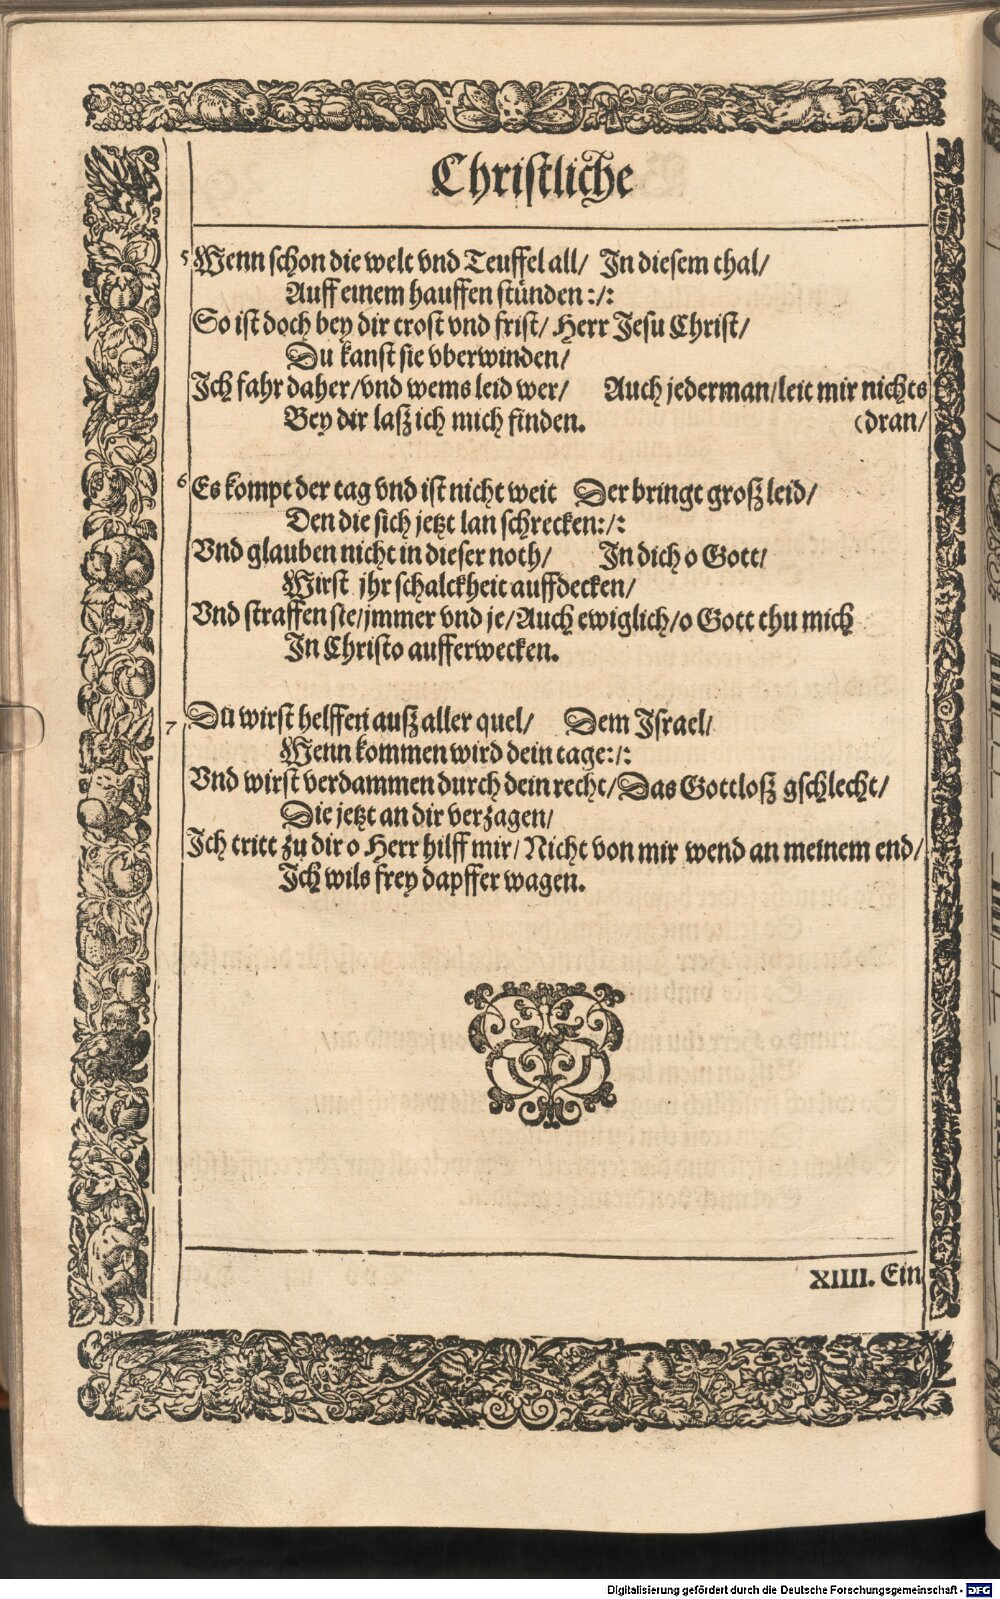 Christliche
5 Wenn schon die welt vnd Teuffel all/ In diesem thal/
Auff einem hauffen stünden :/:
So ist doch bey dir trost vnd frist/ Herr Jesu Christ/
Du kanst sie vberwinden/
Ich fahr daher/vnd wems leid wer/ Auch jederman/leit mir nichts
Bey dir laß ich mich finden. (dran/
6 Es kompt der tag vnd ist nicht weit Der bringt groß leid/
Den die sich jetzt lan schrecken:/:
Vnd glauben nicht in dieser noth/ In dich o Gott/
Wirst jhr schalckheit auffdecken/
Vnd straffen sie/jmmer vnd je/Auch ewiglich/o Gott thu mich
In Christo aufferwecken.
7 Du wirst helffen auß aller quel/ Dem Israel/
Wenn kommen wird dein tage:/:
Vnd wirst verdammen durch dein recht/Das Gottloß gschlecht/
Die jetzt an dir verzagen/
Ich tritt zu dir o Herr hilff mir/Nicht von mir wend an meinem end/
Ich wils frey dapffer wagen.
XIIII. Ein
Digitalisierung gefördert durch die Deutsche Forschungsgemeinschaft - DFG